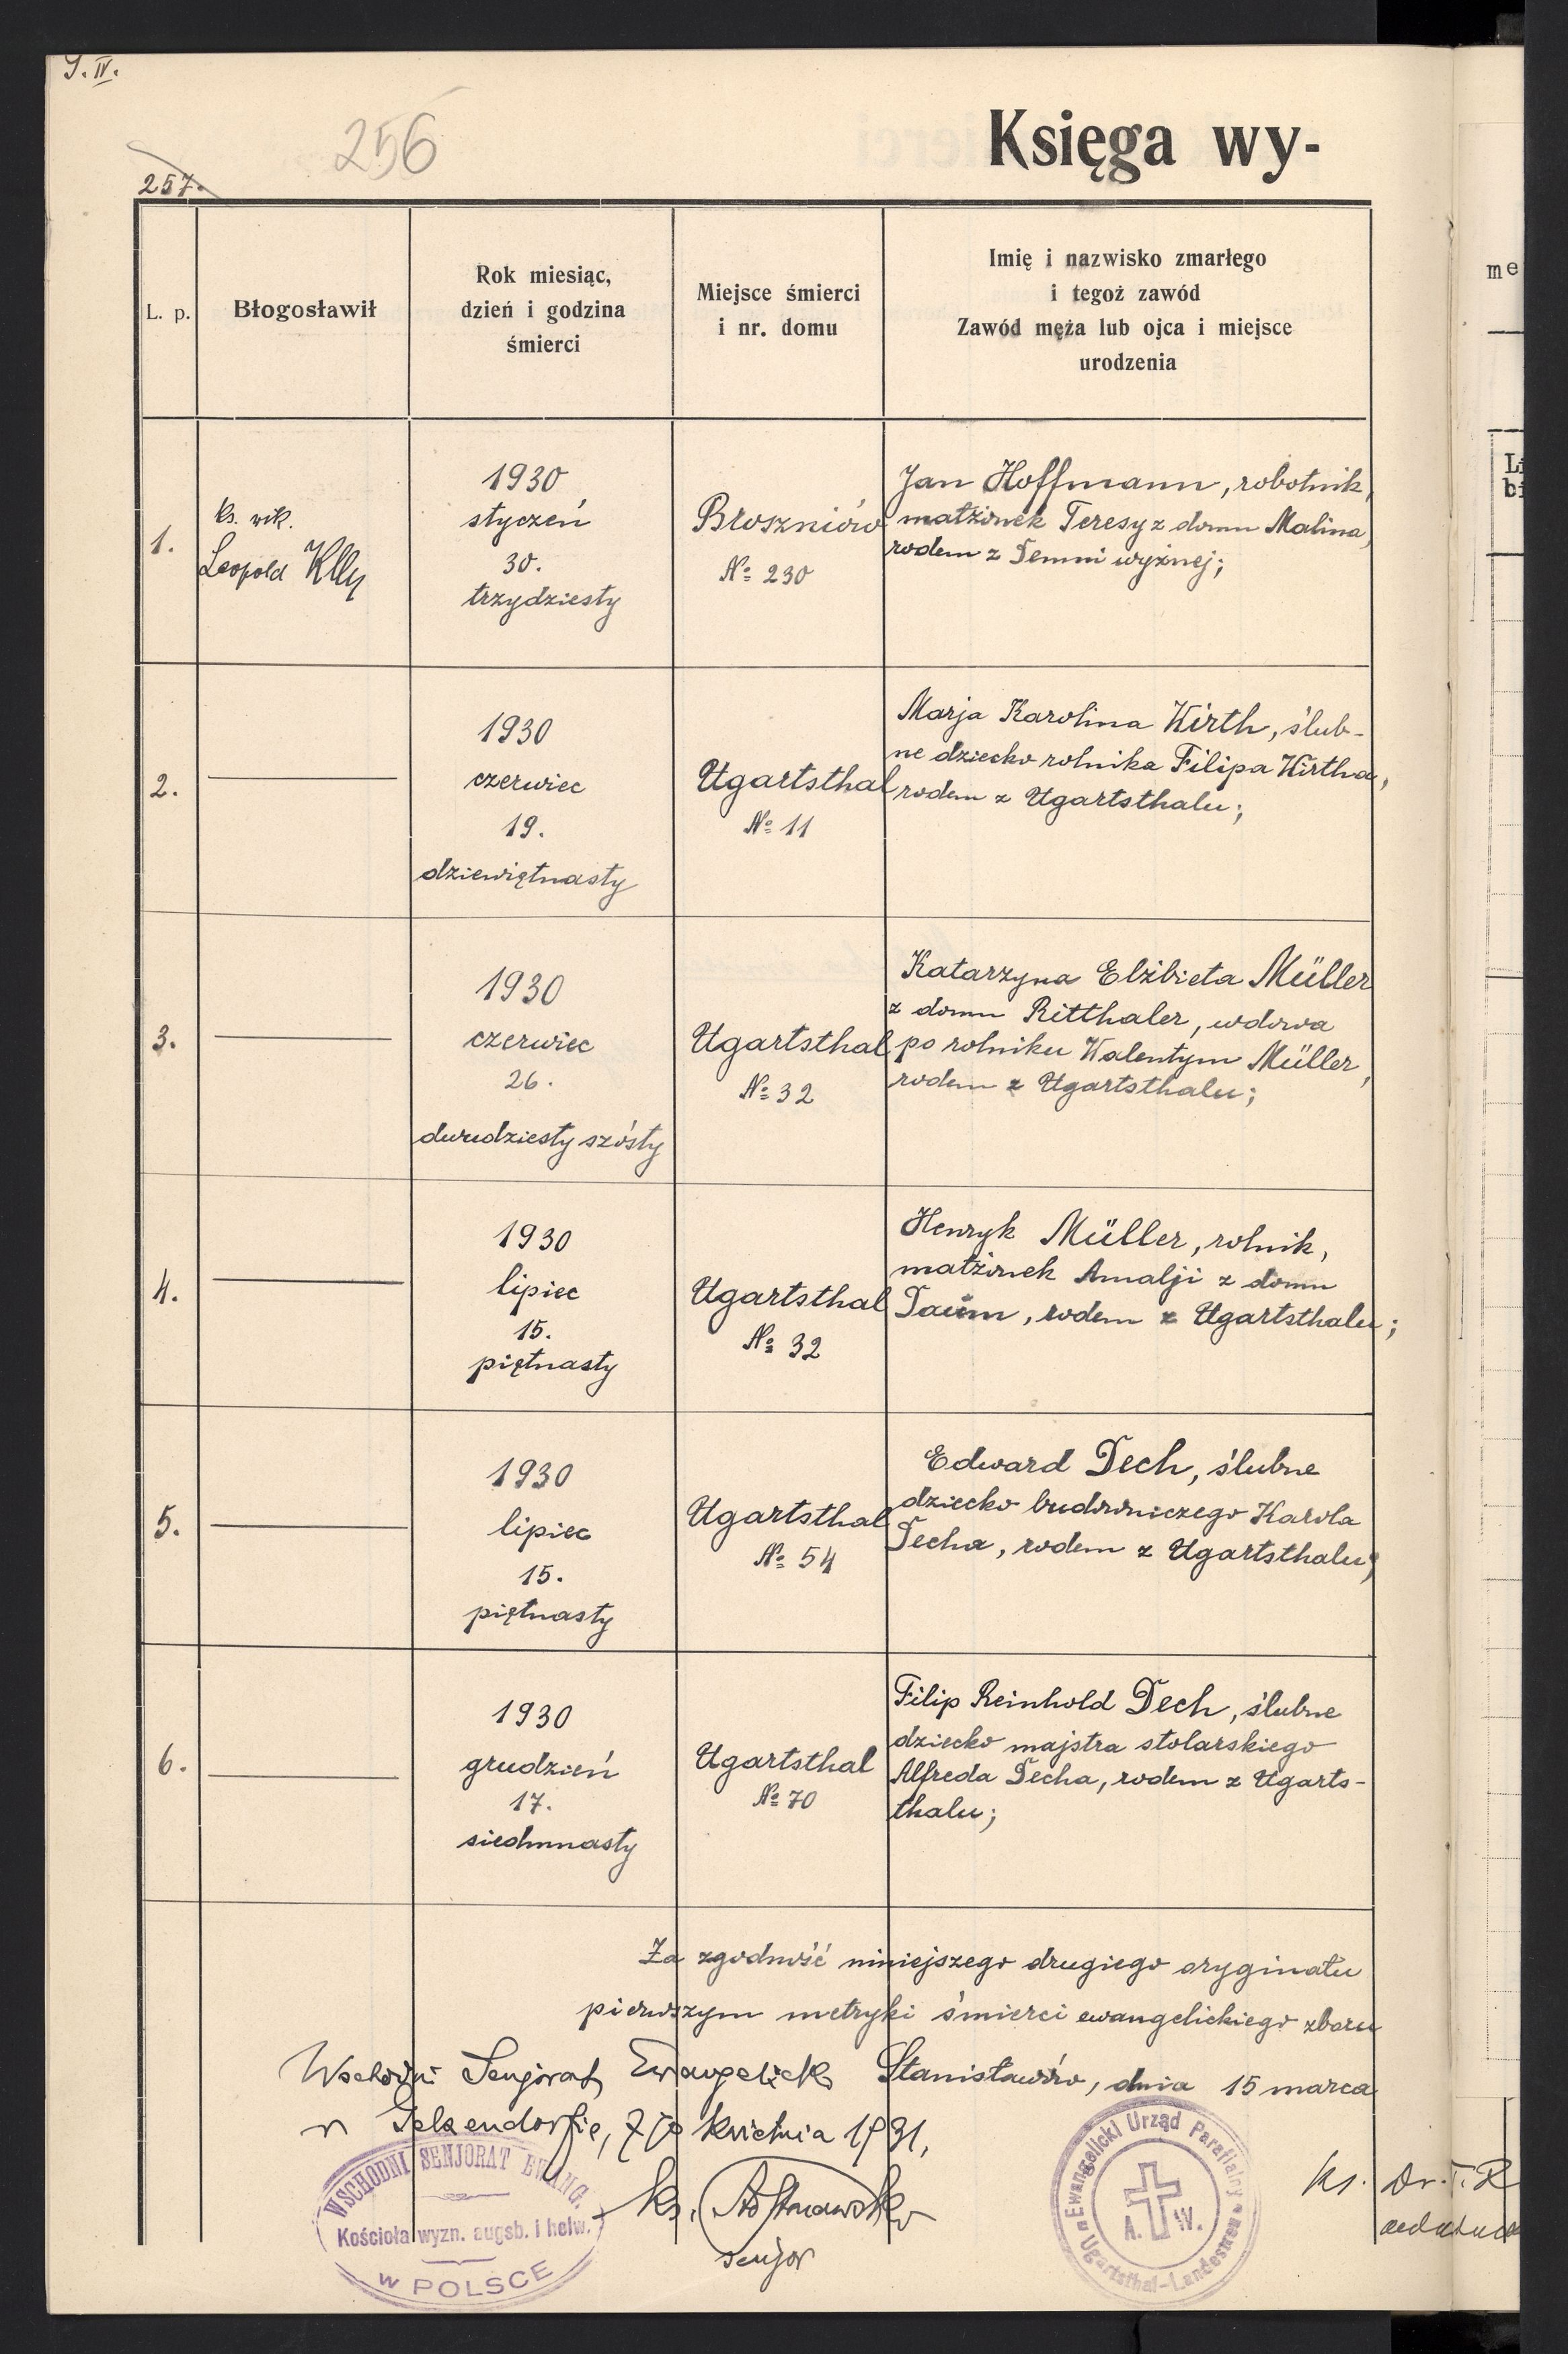 S. IV.
256
257.
Księga wy-
L. p.
Błogosławił
Rok miesiąc,
dzień i godzina
śmierci
Miejsce śmierci
i nr. domu
Imię i nazwisko zmarłego
i tegoż zawód
Zawód męża lub ojca i miejsce
urodzenia
1.
ks. wik.
Leopold
1930
styczeń
30.
trzydziesty
Broszniów
№ 230
Jan Hoffmann, robotnik,
małżonek Teresy z domu Malina,
rodem z Temni wyżnej;
2.
1930
czerwiec
19.
dziewiętnasty
Ugartsthal
№ 11
Marja Karolina Wirth, ślub-
ne dziecko rolnika Filipa Wirtha,
rodem z Ugartsthalu;
3.
1930
czerwiec
26.
dwudziesty szósty
Ugartsthal
№ 32
Katarzyna Elżbieta Müller
z domu Ritthaler, wdowa
po rolniku Walentym Müller,
rodem z Ugartsthalu;
4.
1930
lipiec
15.
piętnasty
Ugartsthal
№ 32
Henryk Müller, rolnik,
małżonek Amalji z domu
Daum, rodem z Ugartsthalu;
5.
1930
lipiec
15.
piętnasty
Ugartsthal
№ 54
Edward Dech, ślubne
dziecko budowniczego Karola
Decha, rodem z Ugartsthalu;
6.
1930
grudzień
17.
siedmnasty
Ugartsthal
№ 70
Filip Reinhold Dech, ślubne
dziecko majstra stolarskiego
Alfreda Decha, rodem z Ugarts-
thalu;
Za zgodność niniejszego drugiego oryginału
pierwszym metryki śmierci ewangelickiego zboru
Stanisławów, dnia 15 marca
Wschodni Senjorat Ewangelicki
w Gelsendorfie, kwietnia 1931.
ks.
senjor
WSCHODNI SENJORAT EWANG.
Kościoła wyzn. augsb. i helw.
w POLSCE
Ewangelicki Urząd Parafialny
A. W.
Ugartsthal-Landestreu
ks. Dr. T. Z
me
Li
bi